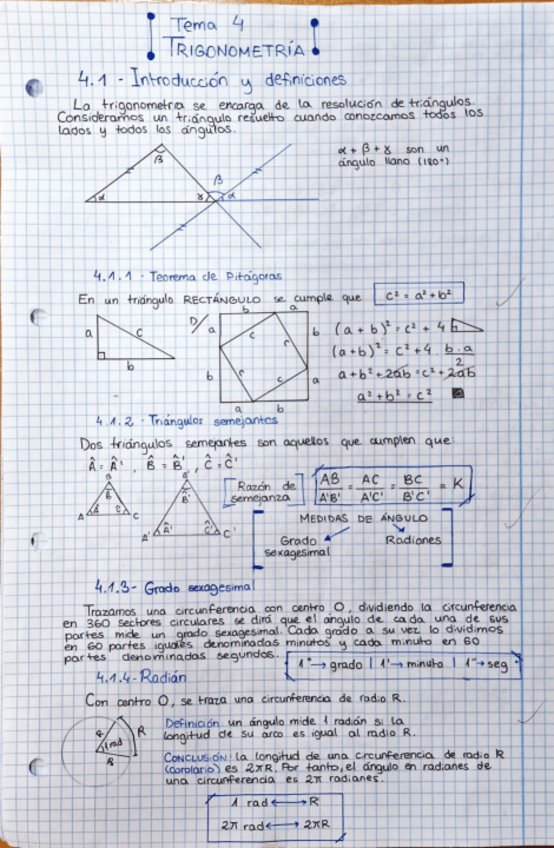 Tema 4
TRIGONOMETRÍA
4.1 - Introducción y definiciones
La trigonometría se encarga de la resolución de triángulos.
Consideramos un triángulo resuelto cuando conozcamos todos los
lados y todos los ángulos.
α + β + γ son un
ángulo llano (180°)
β
α
γ
β
α
4.1.1 - Teorema de Pitágoras
En un triángulo RECTÁNGULO se cumple que c² = a² + b²
a c b
D/
b a
a b
c c
c c
b a
a b
(a + b)² = c² + 4
(a+b)² = c² + 4 b·a/2
a+b²+2ab=c²+2ab
a²+b² = c²
4.1.2 - Triángulos semejantes
Dos triángulos semejantes son aquellos que cumplen que:
Â = Â', B̂ = B̂', Ĉ = Ĉ'
B B̂ A Â Ĉ C
B' B̂' A' Â' Ĉ' C'
Razón de
semejanza
AB/A'B' = AC/A'C' = BC/B'C' = K
MEDIDAS DE ÁNGULO
Grado Radianes
sexagesimal
4.1.3 - Grado sexagesimal
Trazamos una circunferencia con centro O, dividiendo la circunferencia
en 360 sectores circulares se dirá que el ángulo de cada una de sus
partes mide un grado sexagesimal. Cada grado a su vez lo dividimos
en 60 partes iguales denominadas minutos y cada minuto en 60
partes denominadas segundos.
1° → grado | 1' → minuto | 1'' → seg
4.1.4 - Radián
Con centro O, se traza una circunferencia de radio R.
R 1 rad R
R
Definición: un ángulo mide 1 radián si la
longitud de su arco es igual al radio R.
CONCLUSIÓN: la longitud de una circunferencia de radio R
(corolario) es 2πR. Por tanto, el ángulo en radianes de
una circunferencia es 2π radianes.
1 rad ⟷ R
2π rad ⟷ 2πR